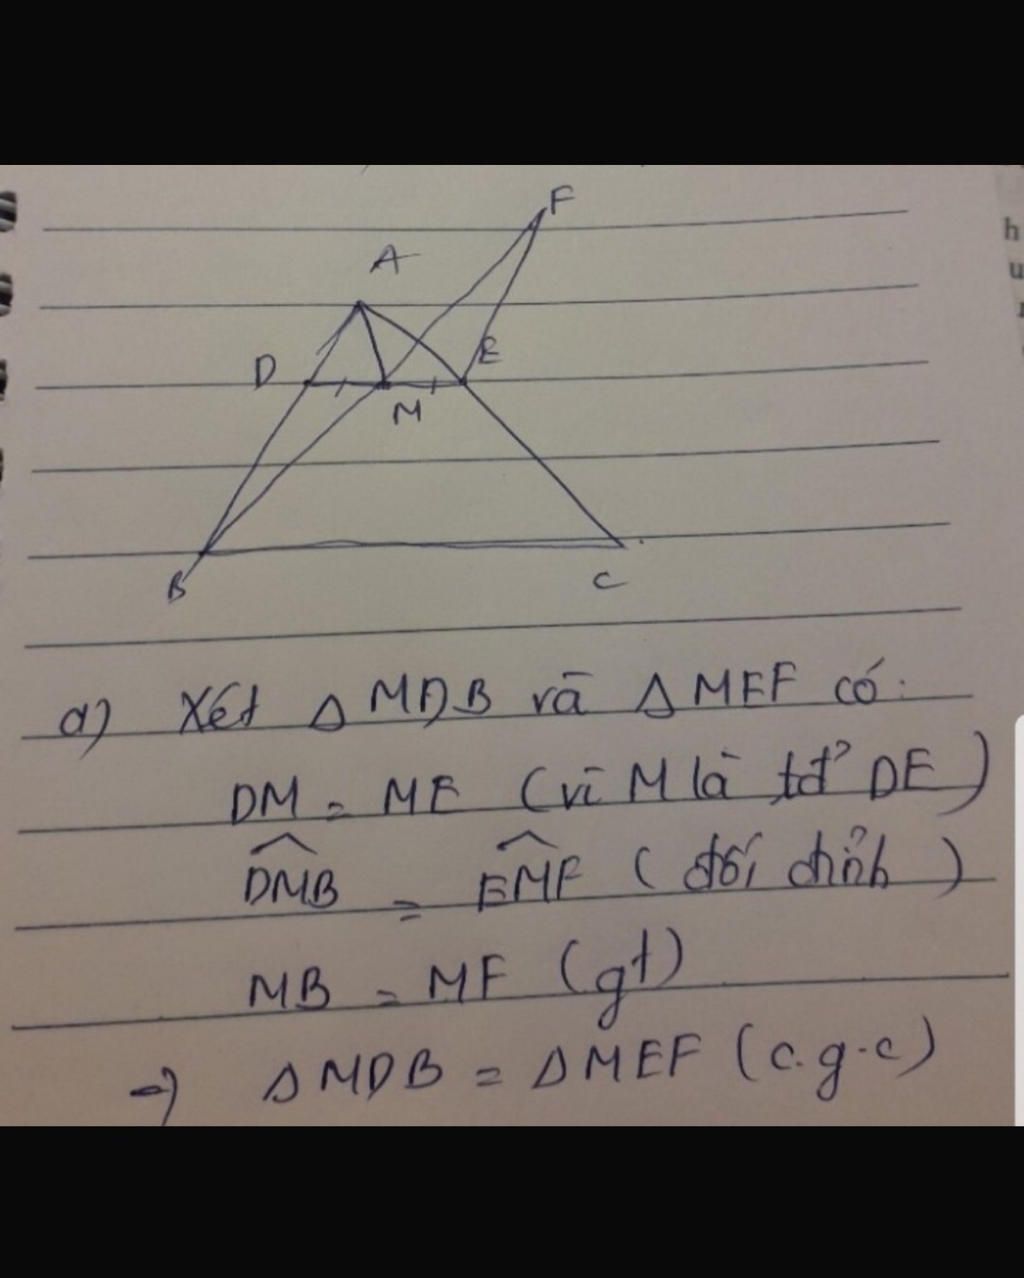 F
A
D
E
M
B
C
a) Xét Δ MDB và Δ MEF có:
DM = ME (vì M là tđ' DE)
DMB = EMF (đối đỉnh)
MB = MF (gt)
=> Δ MDB = Δ MEF (c.g.c)
h
u